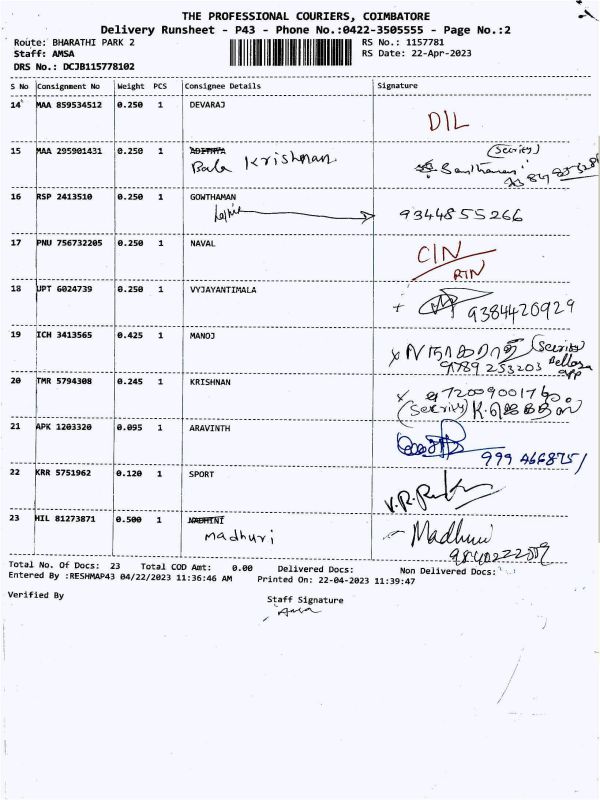 THE PROFESSIONAL COURIERS, COIMBATORE
Delivery Runsheet - P43 - Phone No.:0422-3505555 - Page No.:2
Route: BHARATHI PARK 2 RS No.: 1157781
Staff: AMSA RS Date: 22-Apr-2023
DRS No.: DCJB115778102
S No Consignment No Weight PCS Consignee Details Signature
14 MAA 859534512 0.250 1 DEVARAJ DIL
15 MAA 295901431 0.250 1 ADITHYA
Bala Krishnan
16 RSP 2413510 0.250 1 GOWTHAMAN
9344855266
17 PNU 756732205 0.250 1 NAVAL CIN
RTN
18 UPT 6024739 0.250 1 VYJAYANTIMALA 9384420929
19 ICH 3413565 0.425 1 MANOJ
9789253203
20 TMR 5794308 0.245 1 KRISHNAN
21 APK 1203320 0.095 1 ARAVINTH
22 KRR 5751962 0.120 1 SPORT
23 HIL 81273871 0.500 1 NADHINI
madhuri Madhuri
Total No. Of Docs: 23 Total COD Amt: 0.00 Delivered Docs: Non Delivered Docs:
Entered By :RESHMAP43 04/22/2023 11:36:46 AM Printed On: 22-04-2023 11:39:47
Verified By Staff Signature